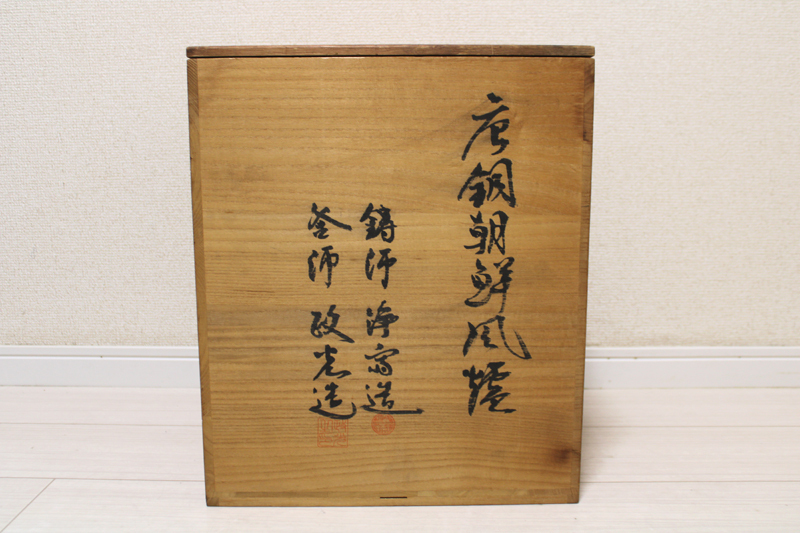 唐銅朝鮮風爐
鋳師 浄斎造
釜師 政光造